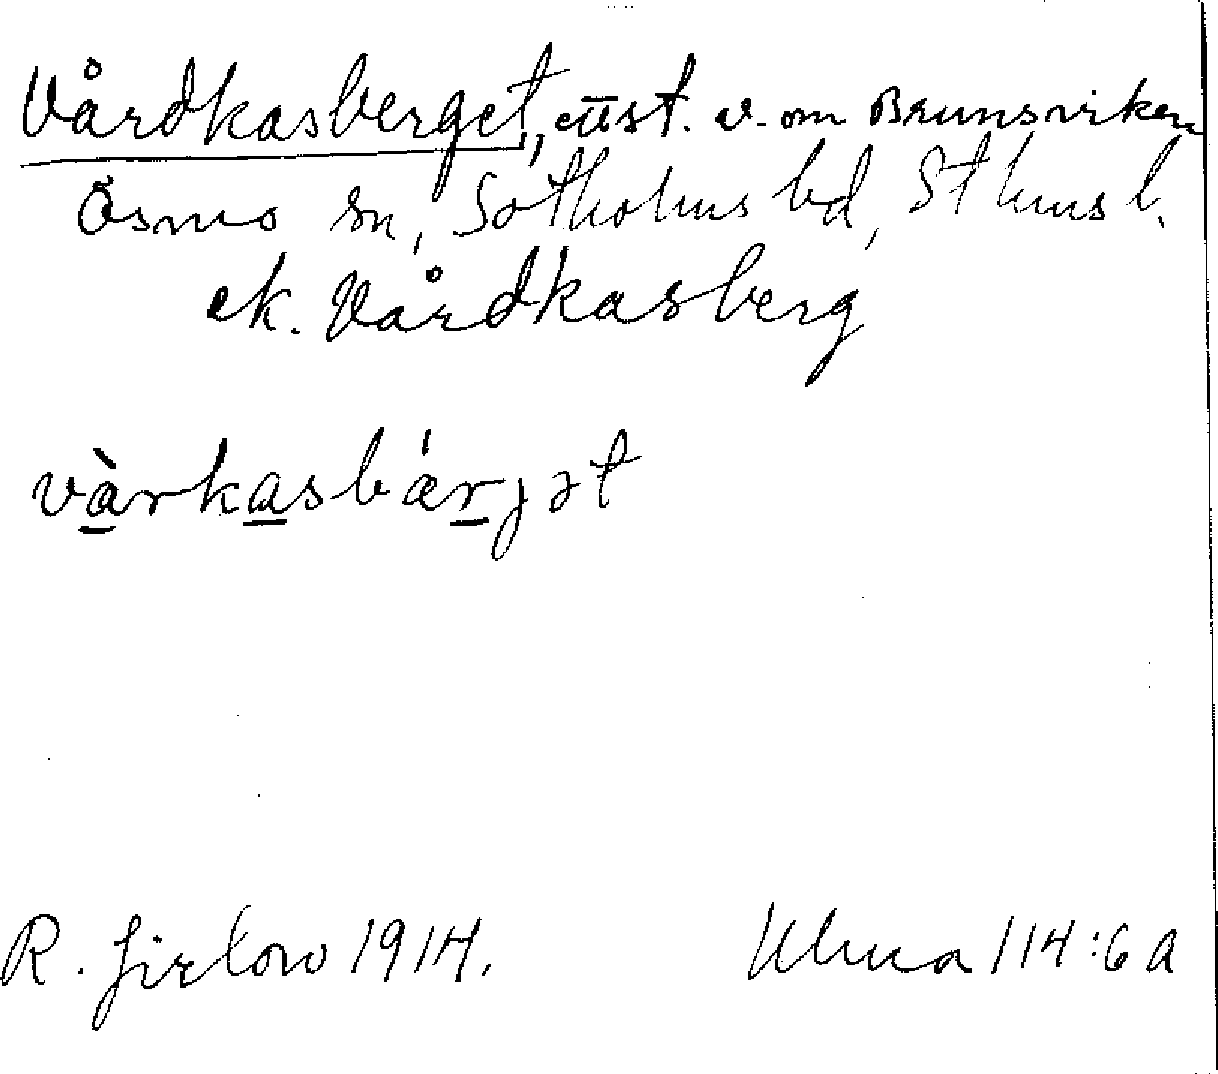 Vårdkasberget, cüst. v. om Brunsviken
Ösmo sn, Sotholms hd, Sthms l.
ek. Vårdkasberg
vàrkasbárjət
R. Jirlow 1914. Ulma 114:6 A